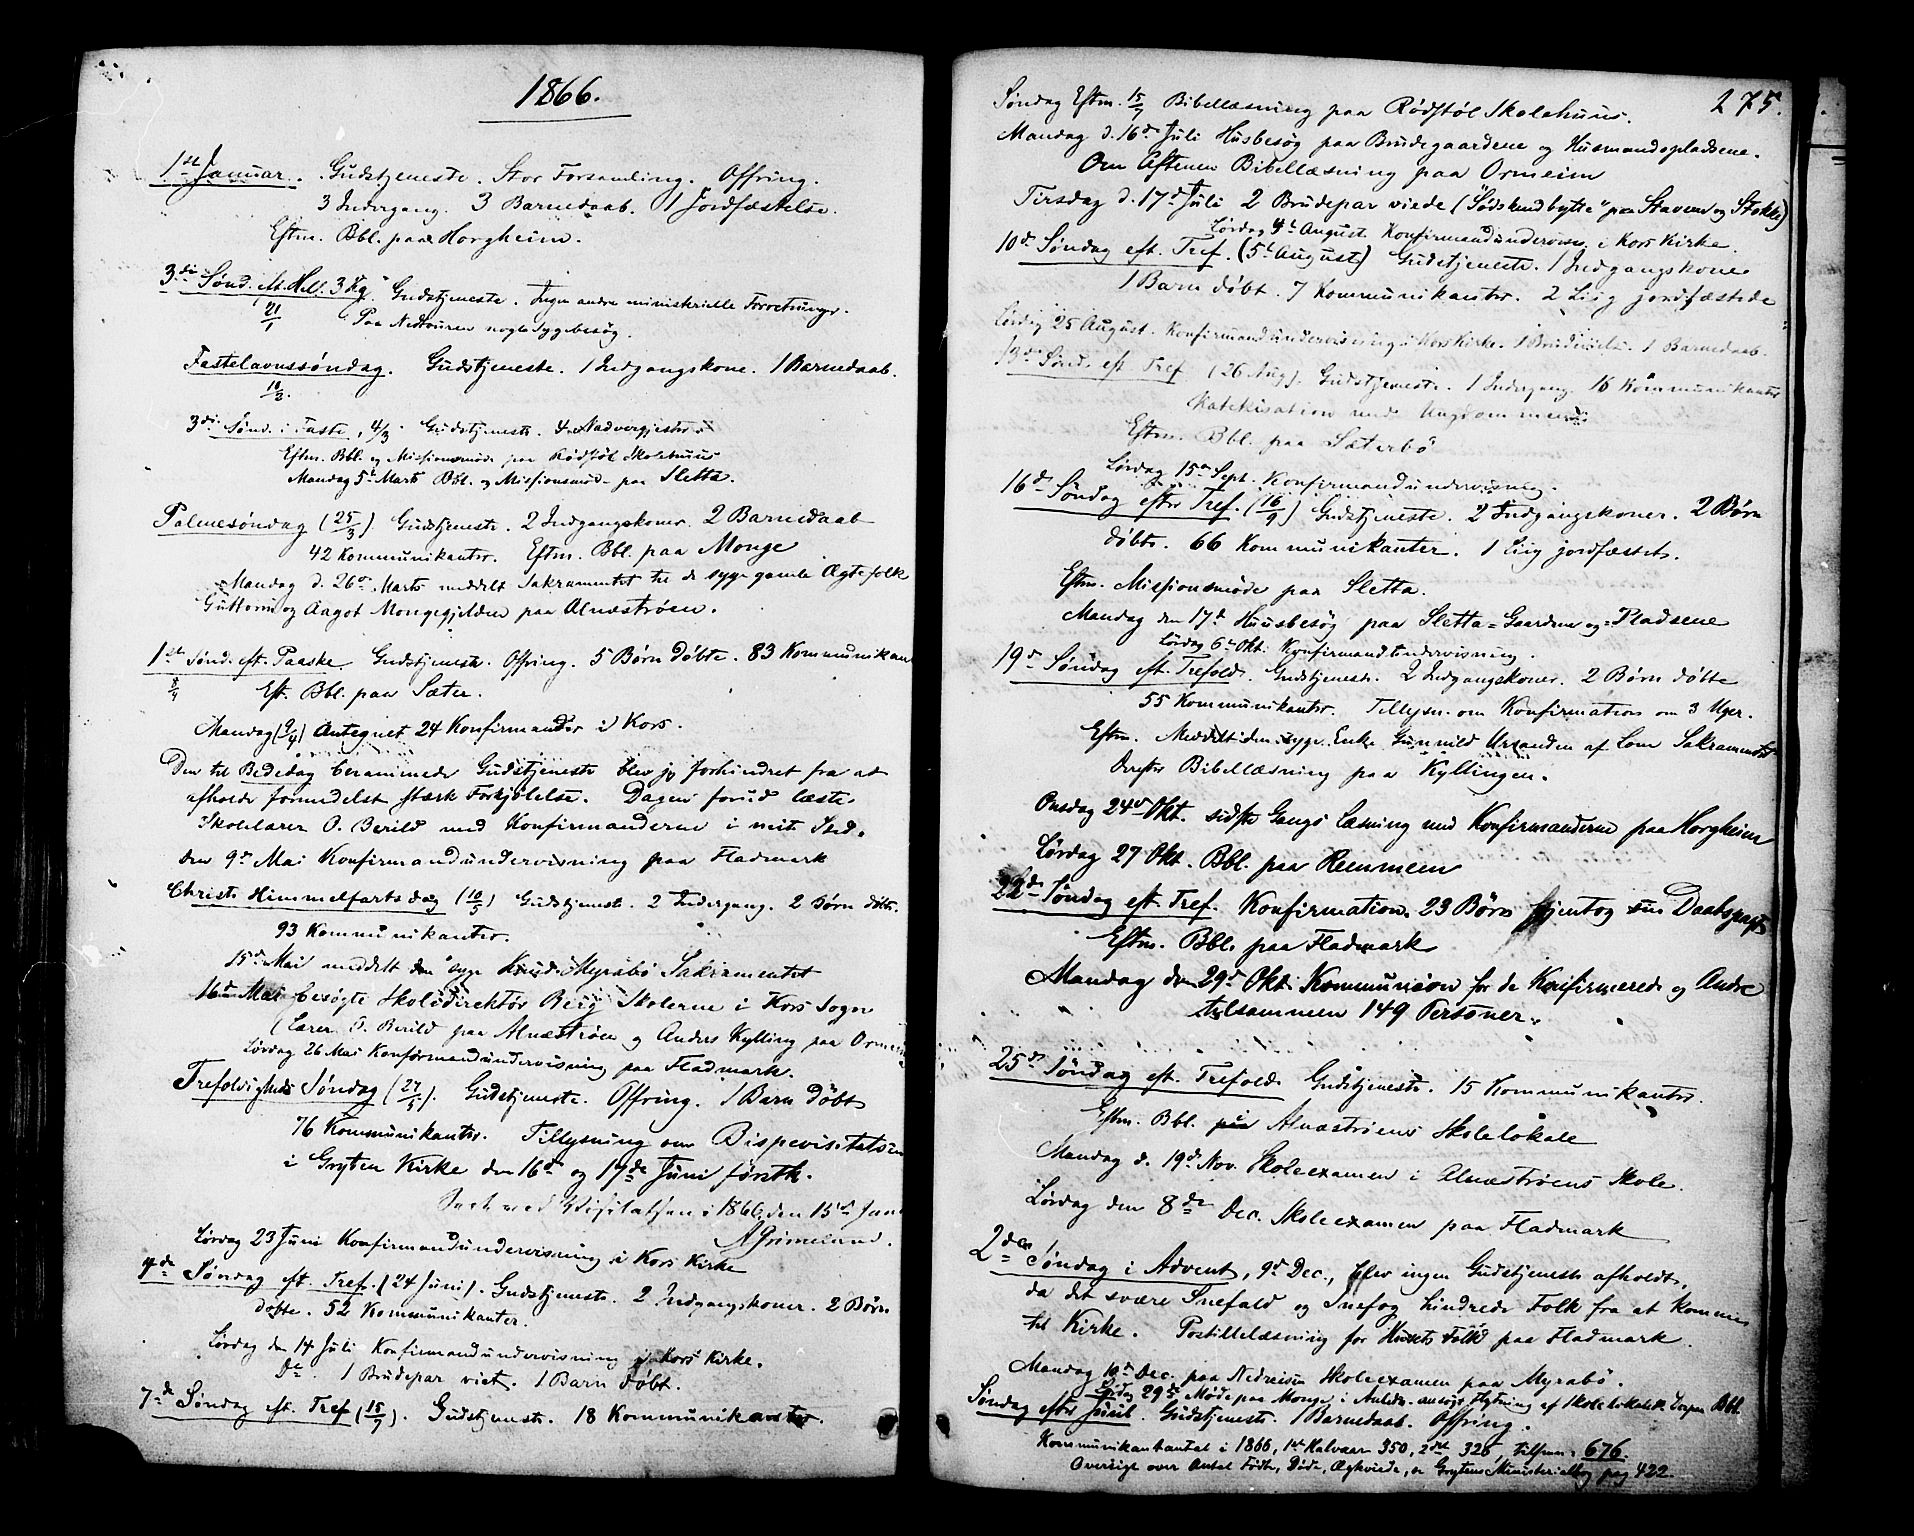 1866.
1ste Januar. Gudstjeneste. Stor Forsamling. Offring.
3 Indergang. 3 Barnedaab. 1 Jordfæstelse.
Eftm. Bbl. paa Horgheim.
3die Sønd. eft. Hell. 3 Kg. Gudstjeneste. Ingen andre ministerielle Forretninger.
21/1 Paa Nedturen nogle Sygebesøg.
Fastelavnssøndag. Gudstjeneste. 1 Indgangskone. 1 Barnedaab.
3die Sønd. i Faste, 4/3. Gudstjeneste. 4 Nadvergjester.
Eftm. Bbl. og Missionsmøde paa Rødstøl Skolehuus
Mandag 5te Marts Bbl. og Missionsmøde paa Sletta.
Palmesøndag (25/3). Gudstjeneste. 2 Indgangskoner. 2 Barnedaab
42 Kommunikanter. Eftm. Bbl. paa Monge
Mandag d. 26de Marts meddelt Sakramentet til de syge gamle Ægtefolk
Guttorm og Aagot Mongegjelden paa Alnæstrøen.
1ste Sønd. eft. Paaske Gudstjeneste. Offring. 5 Børn døbte. 83 Kommunikan
8/4 Eft. Bbl. paa Sæter.
Mandag (9/4) Antegnet 24 Konfirmander i Kors.
Den til Bededag berammede Gudstjeneste blev jg forhindret fra at
afholde formedelst stærk Forkjølelse. Dagen forud læste
Skolelærer O. Berild med Konfirmanderne i mit Sted.
den 9de Mai Konfirmandundervisning paa Fladmark
Christi Himmelfartsdag (10/5) Gudstjeneste. 2 Indergang. 2 Børn døbte.
93 Kommunikanter.
15de Mai meddelt den syge Knud Myrabø Sakramentet
16de Mai besøgte Skoledirektør Berg Skolerne i Kors Sogn
(Lærer O. Berild paa Alnæstrøen og Anders Kylling paa Ormeim
Lørdag 26 Mai Konfirmandundervisning paa Fladmark.
Trefoldigheds Søndag (27/5). Gudstjeneste. Offring. 1 Barn døbt
76 Kommunikanter. Tillysning om Bispevisitatsen
i Gryten Kirke den 16de og 17de Juni førstk.
ved Visitatsen i 1866, den 15de Juni
AGrimelund.
Lørdag 23 Juni Konfirmandundervisning i Kors Kirke
4de Søndag eft. Tref. (24 Juni). Gudstjeneste. 2 Indgangskoner. 2 Børn
døbte. 52 Kommunikanter.
Lørdag den 14 Juli Konfirmandundervisning i Kors Kirke.
Do. 1 Brudepar viet. 1 Barn døbt.
7de Søndag eft. Tref (15/7). Gudstjeneste. 18 Kommunikanter.
275.
Søndag Eftm. 15/7 Bibellæsning paa Rødstøl Skolehuus.
Mandag d. 16de Juli Husbesøg paa Brudegaardene og Husmandspladsene.
Om Aftenen Bibellæsning paa Ormeim
Tirsdag d. 17de Juli 2 Brudepar viede ("Sødskendbytte" paa Stavem og Stokke)
Lørdag 4de August Konfirmandundervisn. i Kors Kirke
10de Søndag eft. Tref. (5te August) Gudstjeneste. 1 Indgangskone
1 Barn døbt. 7 Kommunikanter. 2 Liig jordfæstede
Lørdag 25 August. Konfirmandundervisning i Kors Kirke. 1 Brudevielse. 1 Barnedaab.
13de Sønd. eft. Tref. (26 Aug). Gudstjeneste. 1 Indergang. 16 Kommunikanter
Katekisation med Ungdommen
Eftm. Bbl. paa Sæterbø
Lørdag 15de Sept. Konfirmandundervisning.
16de Søndag efter Tref. (16/9) Gudstjeneste. 2 Indgangskoner. 2 Børn
døbte. 66 Kommunikanter. 1 Liig jordfæstet.
Eftm. Missionsmøde paa Sletta.
Mandag den 17de Huusbesøg paa Sletta-Gaardene og Pladsene
Lørdag 6te Okt. Konfirmandundervisning.
19de Søndag eft. Trefold. Gudstjeneste. 2 Indgangskoner. 2 Børn døbte
55 Kommunikanter. Tillysn. om Konfirmation om 3 Uger.
Eftm. Meddelt den syge Enke Gunnild af Lom Sakramentet
Derefter Bibellæsning paa Kyllingen.
Onsdag 24de Okt. sidste Gangs Læsning med Konfirmanderne paa Horgheim
Lørdag 27 Okt. Bbl. paa Remmem
22de Søndag eft. Tref. Konfirmation. 23 Børn gjentog sin Daabspagt
Eftm. Bbl. paa Fladmark
Mandag den 29de Okt. Kommunion for de Konfirmerede og Andre
tilsammen 149 Personer.
25de Søndag eft. Trefold. Gudstjeneste. 15 Kommunikanter.
Eftm. Bbl. paa Alnæstrøens Skolelokale
Mandag d. 19de Nov. Skoleexamen i Alnæstrøens Skole.
Lørdag den 8de Dec. Skoleexamen paa Fladmark
2den Søndag i Advent, 9de Dec., blev ingen Gudstjeneste afholdt,
da det svære Snefald og Snefog hindrede Folk fra at komme
til Kirke. Postillelæsning for Husets Folk paa Fladmark.
Mandag 10de Dec. paa Nedreisen Skoleexamen paa Myrabø.
29de Møde paa Monge i Anledn. Flytning af Skolelokalet. Bbl.
Søndag efter Juul. Gudstjeneste. 1 Barnedaab. Offring.
Kommunikantantal i 1866, 1ste Halvaar 350, 2det 326, tilsmn. 676.
Oversigt over Antal Fødte, Døde, Ægteviede, se Grytens Ministerialbog pag 422.